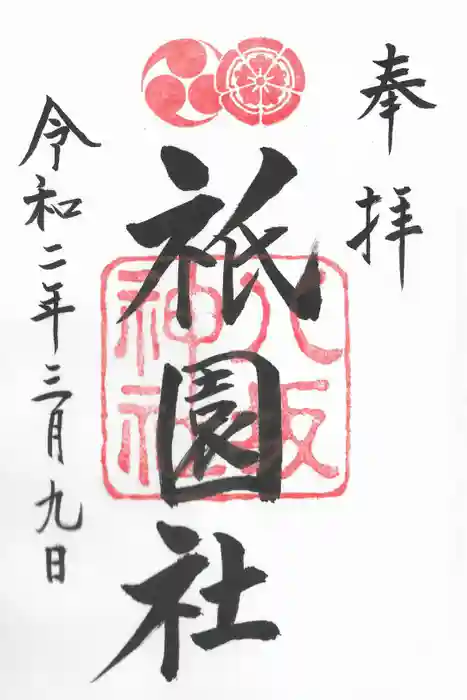 奉拝
祇園社
八坂
神社
令和二年三月九日